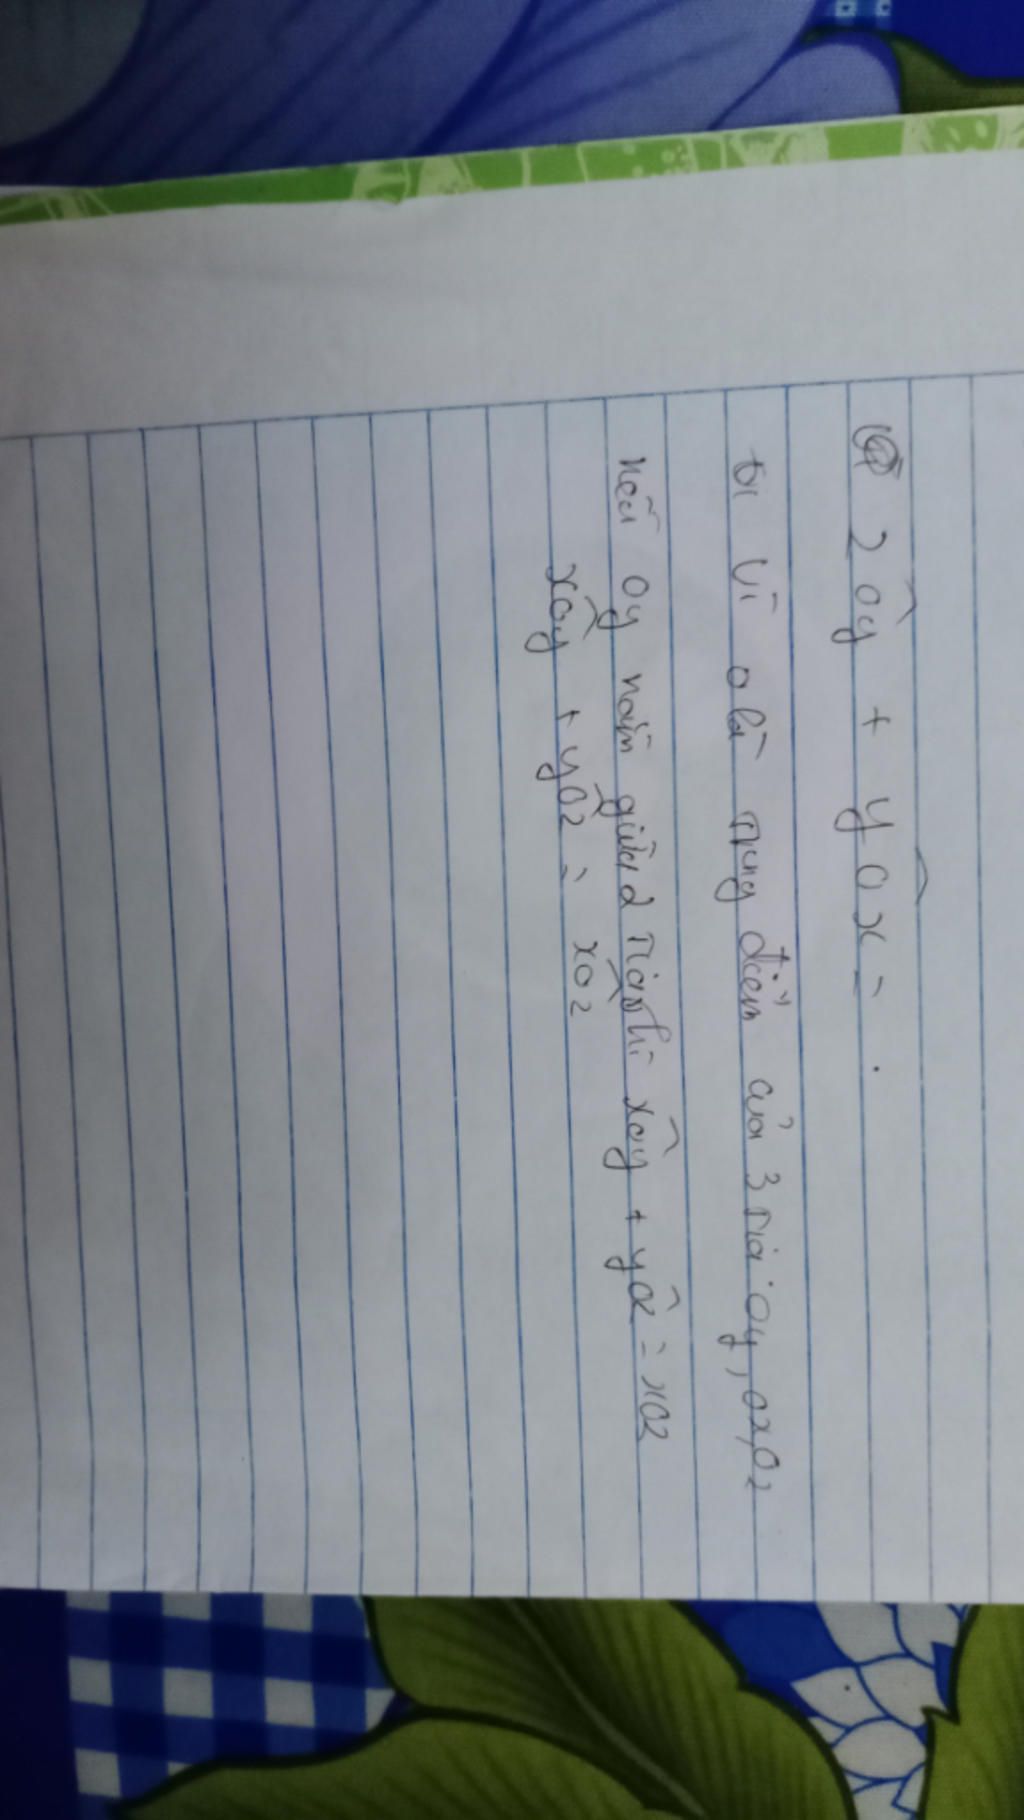 2oy + yox =
vì o là trung điểm của 3 tia oy, ox, oz
nếu oy nằm giữa 2 tia thì xôy + yôz = xoz
xôy + yôz = xoz